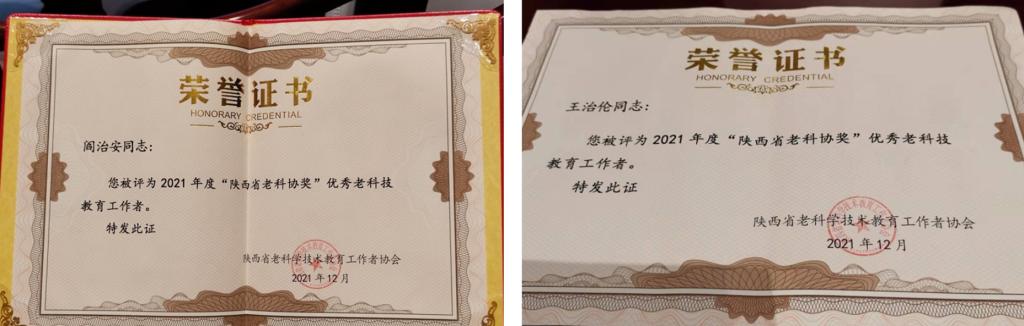 荣誉证书
HONORARY CREDENTIAL
阎治安同志：
您被评为 2021 年度“陕西省老科协奖”优秀老科技
教育工作者。
特发此证
陕西省老科学技术教育工作者协会
2021 年 12 月
荣誉证书
HONORARY CREDENTIAL
王治伦同志：
您被评为 2021 年度“陕西省老科协奖”优秀老科技
教育工作者。
特发此证
陕西省老科学技术教育工作者协会
2021 年 12 月